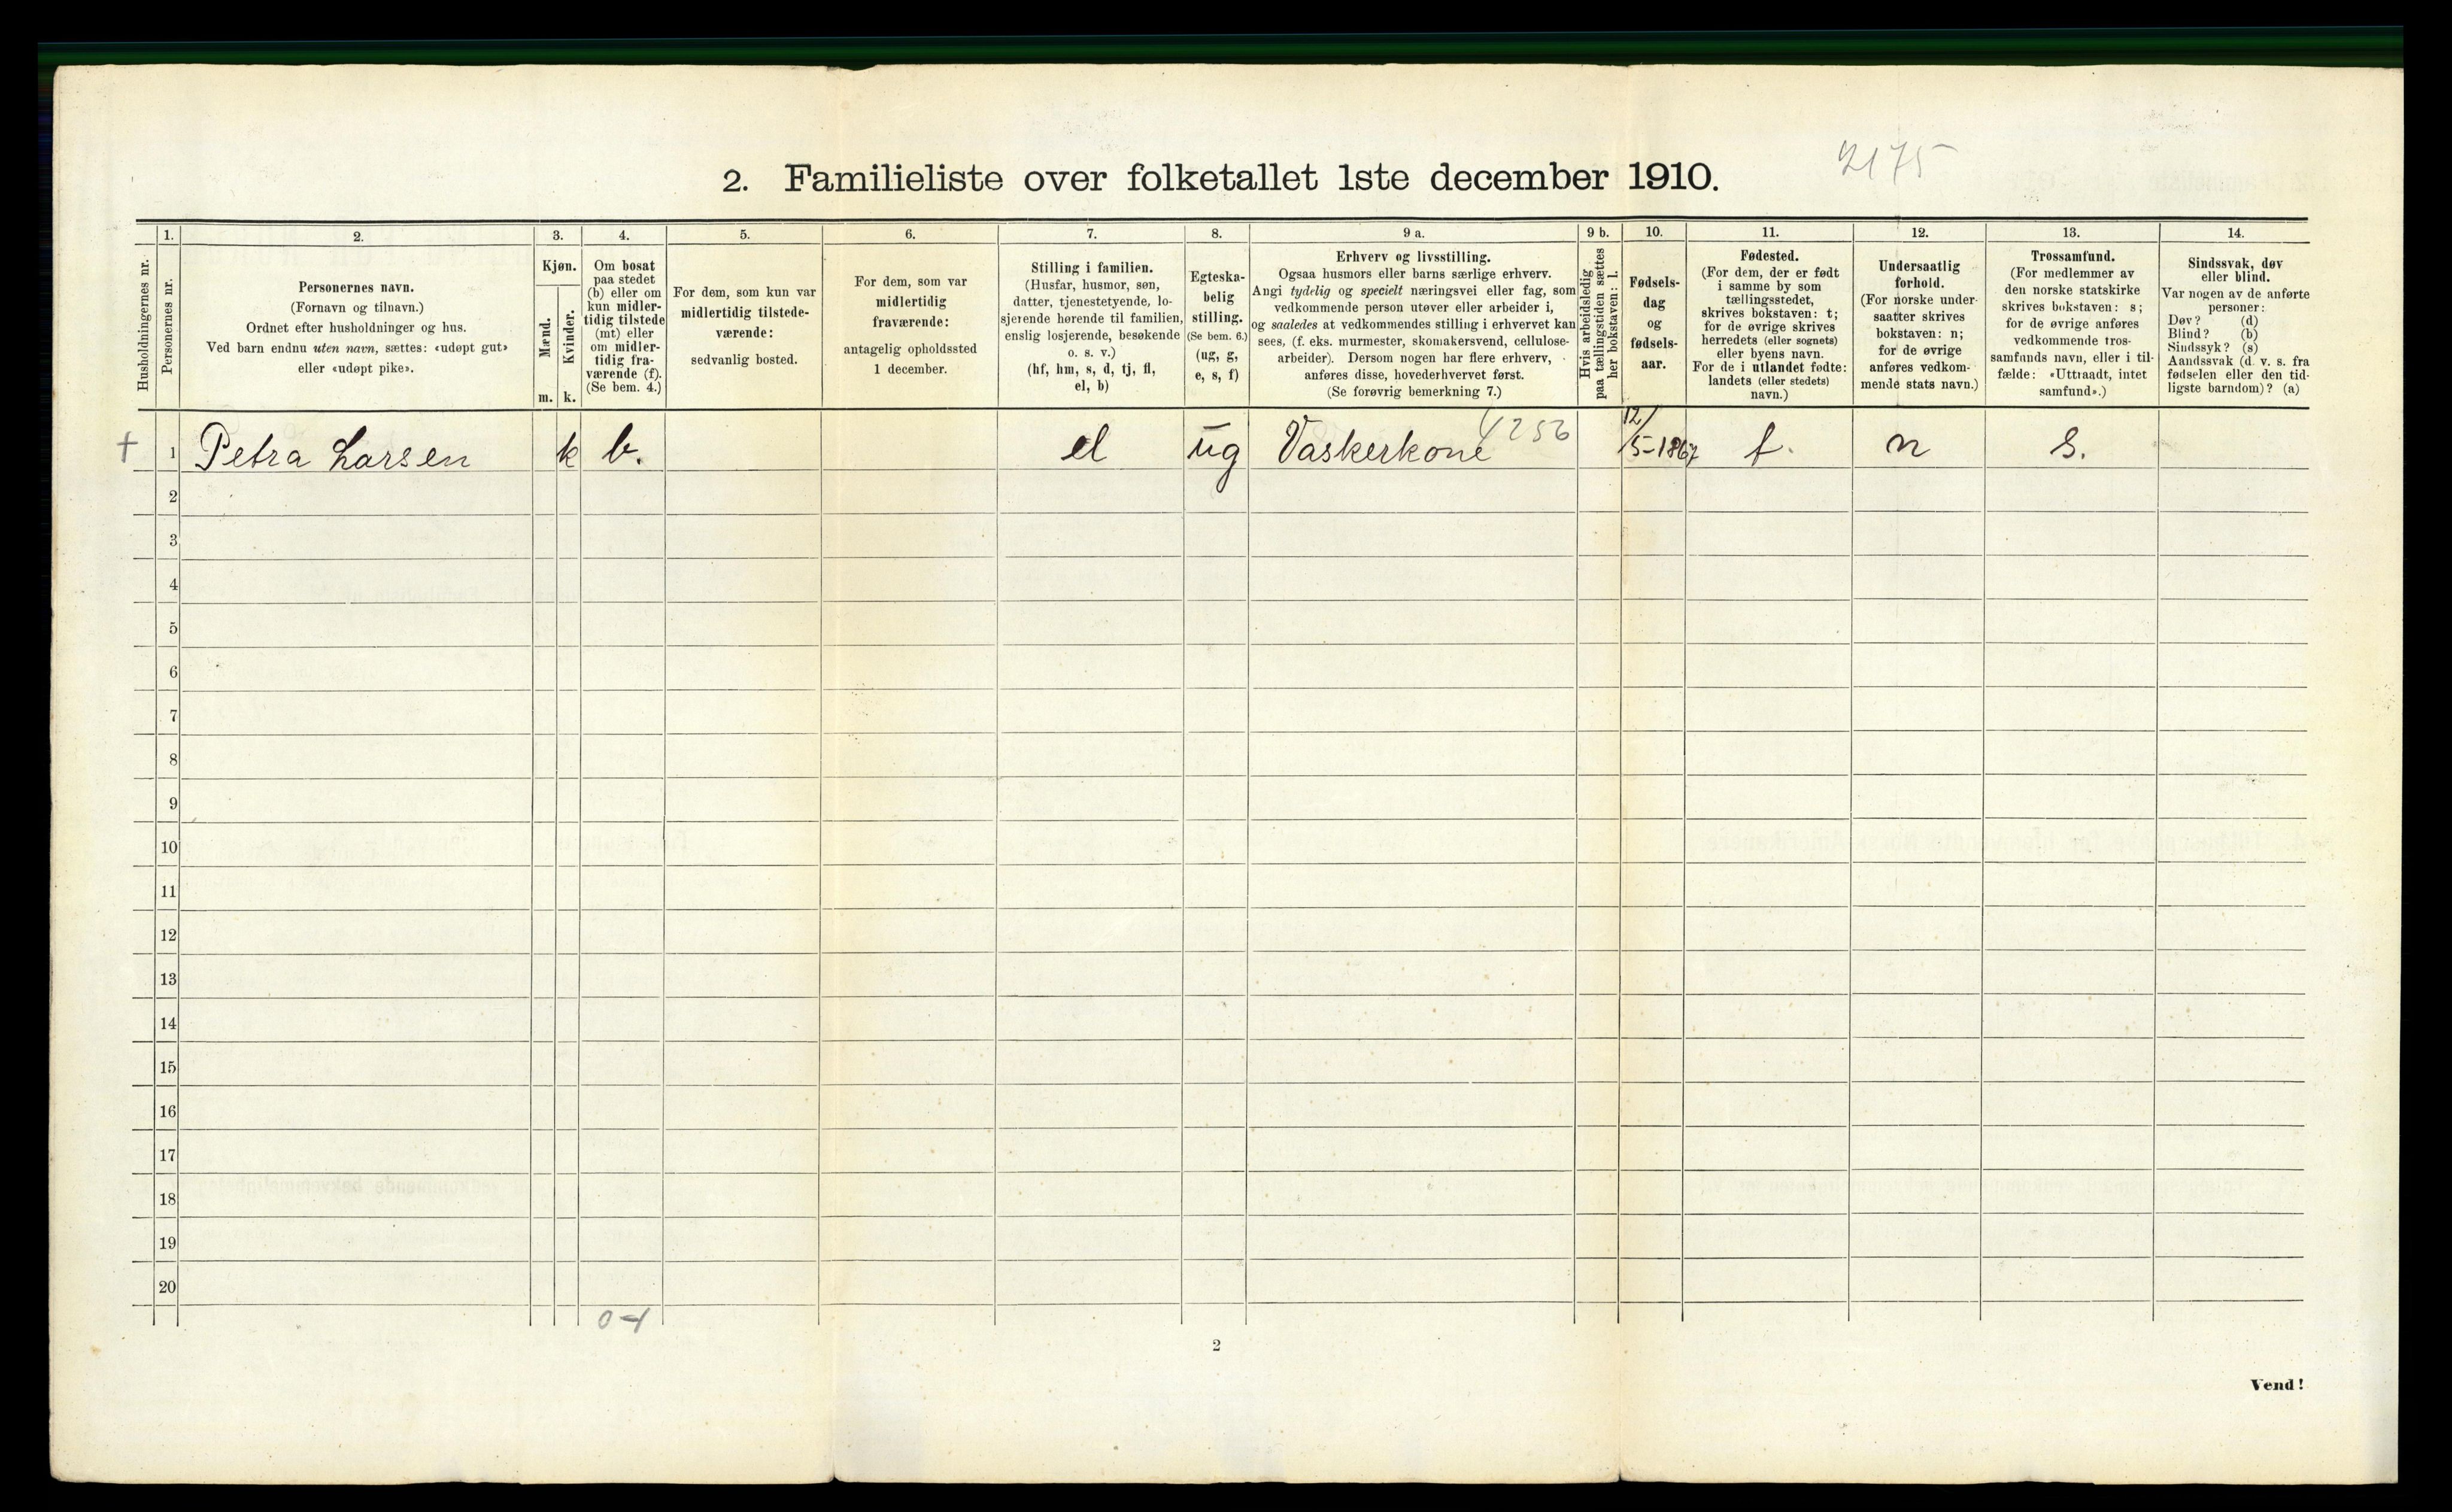 2. Familieliste over folketallet 1ste december 1910.
2175
1.
2.
3.
4.
5.
6.
7.
8.
9 a.
9 b.
10.
11.
12.
13.
14.
Husholdningernes nr.
Personernes nr.
Personernes navn.
(Fornavn og tilnavn.)
Ordnet efter husholdninger og hus.
Ved barn endnu uten navn, sættes: «udøpt gut»
eller «udøpt pike».
Kjøn.
Mænd.
Kvinder.
m. k.
Om bosat
paa stedet
(b) eller om
kun midler-
tidig tilstede
(mt) eller
om midler-
tidig fra-
værende (f).
(Se bem. 4.)
For dem, som kun var
midlertidig tilstede-
værende:
sedvanlig bosted.
For dem, som var
midlertidig
fraværende:
antagelig opholdssted
1 december.
Stilling i familien.
(Husfar, husmor, søn,
datter, tjenestetyende, lo-
sjerende hørende til familien,
enslig losjerende, besøkende
o. s. v.)
(hf, hm, s, d, tj, fl,
el, b)
Egteska-
belig
stilling.
(Se bem. 6.)
(ug, g,
e, s, f)
Erhverv og livsstilling.
Ogsaa husmors eller barns særlige erhverv.
Angi tydelig og specielt næringsvei eller fag, som
vedkommende person utøver eller arbeider i,
og saaledes at vedkommendes stilling i erhvervet kan
sees, (f. eks. murmester, skomakersvend, cellulose-
arbeider). Dersom nogen har flere erhverv,
anføres disse, hovederhvervet først.
(Se forøvrig bemerkning 7.)
Hvis arbeidsledig
paa tællingstiden sættes
her bokstaven: l.
Fødsels-
dag
og
fødsels-
aar.
Fødested.
(For dem, der er født
i samme by som
tællingsstedet,
skrives bokstaven: t;
for de øvrige skrives
herredets (eller sognets)
eller byens navn.
For de i utlandet fødte:
landets (eller stedets)
navn.)
Undersaatlig
forhold.
(For norske under-
saatter skrives
bokstaven: n;
for de øvrige
anføres vedkom-
mende stats navn.)
Trossamfund.
(For medlemmer av
den norske statskirke
skrives bokstaven: s;
for de øvrige anføres
vedkommende tros-
samfunds navn, eller i til-
fælde: «Uttraadt, intet
samfund».)
Sindssvak, døv
eller blind.
Var nogen av de anførte
personer:
Døv? (d)
Blind? (b)
Sindssyk? (s)
Aandssvak (d. v. s. fra
fødselen eller den tid-
ligste barndom)? (a)
+ 1 Petra Larsen k b. el ug Vaskerkone 4256 12/5-1867 t. n s.
2
3
4
5
6
7
8
9
10
11
12
13
14
15
16
17
18
19
20
0-1
2
Vend!